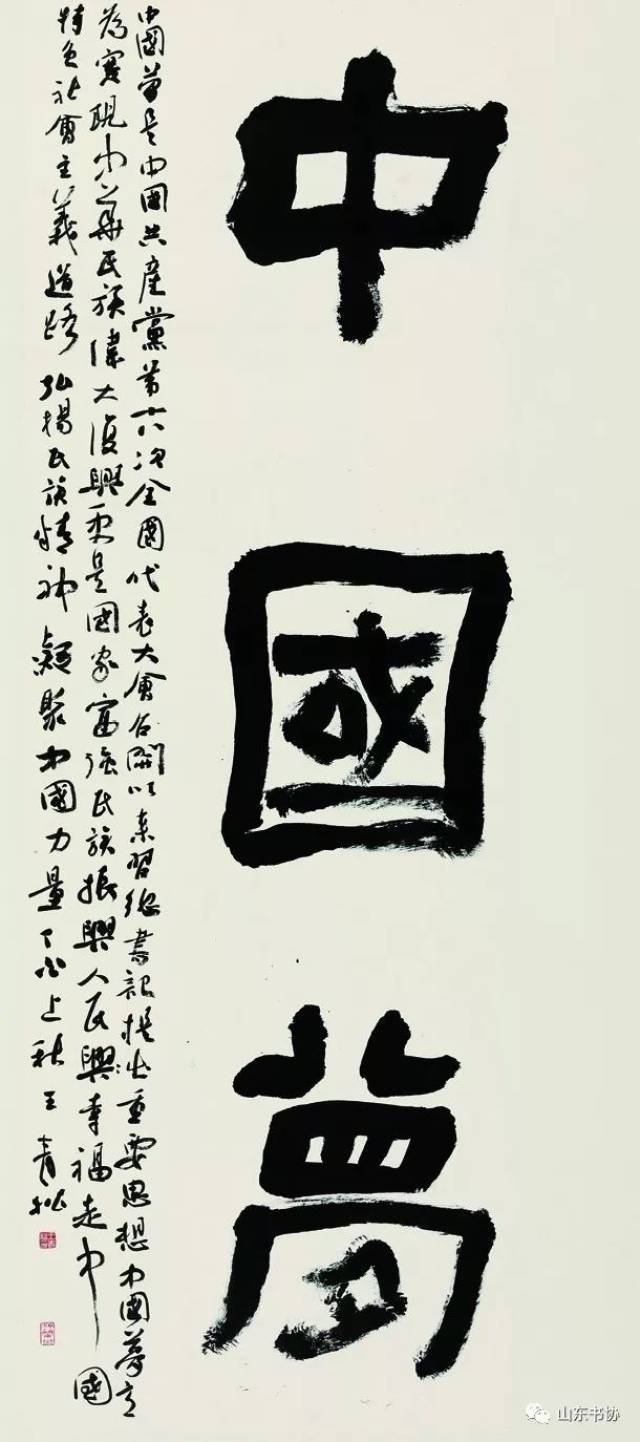 中國夢
中國夢是中國共産黨第十八次全國代表大會召開以来習總書記提出重要思想中國夢
為實現中華民族偉大復興是國家富強民族振興人民興幸福走中國
特色社會主義道路弘揚民族精神凝聚中國力量丁酉上秋王
山东书协